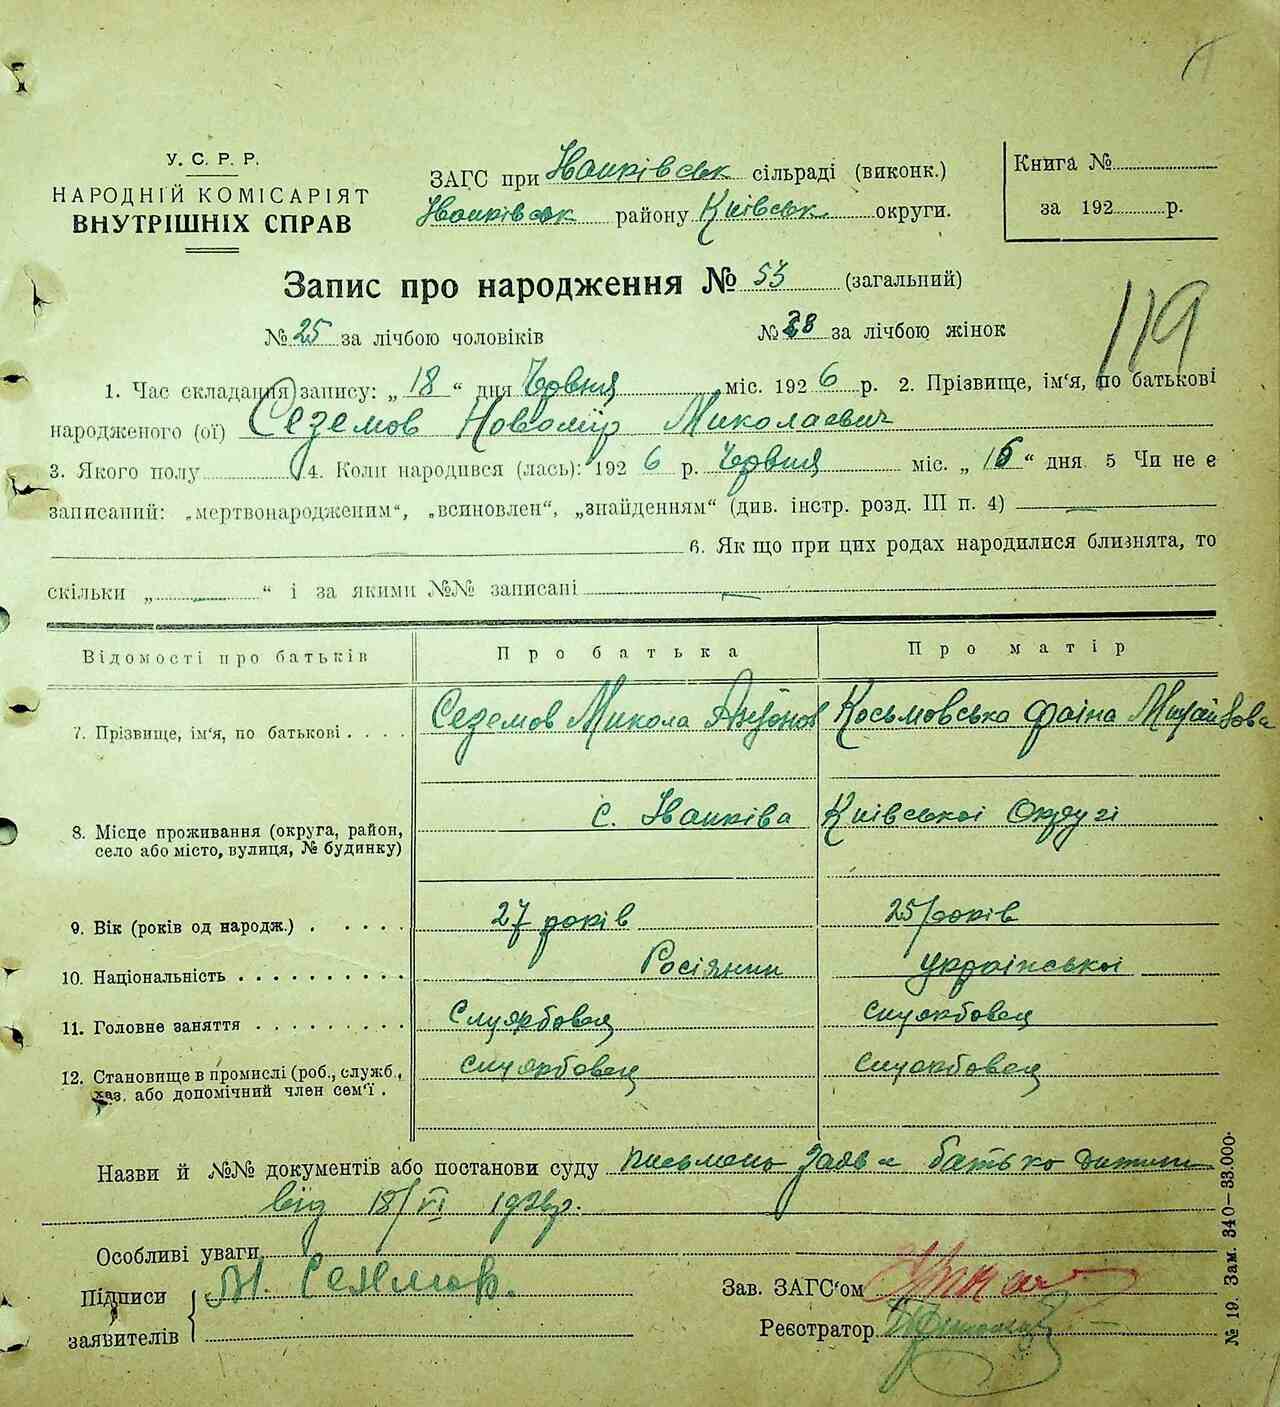 У. С. Р. Р.
НАРОДНІЙ КОМІСАРІЯТ
ВНУТРІШНІХ СПРАВ
ЗАГС при Іванківськ сільраді (виконк.)
Іванківськ району Київськ округи.
Книга №
за 192 р.
Запис про народження № 53 (загальний)
№ 25 за лічбою чоловіків № 28 за лічбою жінок
119
1. Час складання запису: „ 18 “ дня Червня міс. 192 6 р. 2. Прізвище, ім‘я, по батькові
народженого (ої) Сеземов Новомір Миколаєвич
3. Якого полу 4. Коли народився (лась): 192 6 р. Червня міс. „ 16 “ дня. 5 Чи не є
записаний: „мертвонародженим“, „всиновлен“, „знайденням“ (див. інстр. розд. III п. 4)
6. Як що при цих родах народилися близнята, то
скільки „ “ і за якими №№ записані
Відомості про батьків Про батька Про матір
7. Прізвище, ім‘я, по батькові Сеземов Микола Антонов Косьмовська Фаіна Михайлова
8. Місце проживання (округа, район, село або місто, вулиця, № будинку) с. Іванківа Київської Округі
9. Вік (років од народж.) 27 років 25 років
10. Національність Росіянин української
11. Головне заняття Службовец службовец
12. Становище в промислі (роб., служб., хаз. або допомічний член сем‘ї. службовец службовец
Назви й №№ документів або постанови суду письмено заява батько дитини
від 18/VI 1926р.
Особливі уваги
Підписи
заявителів
М. Сеземов.
Зав. ЗАГС‘ом
Реєстратор
№ 19. Зам. 340—33.000.